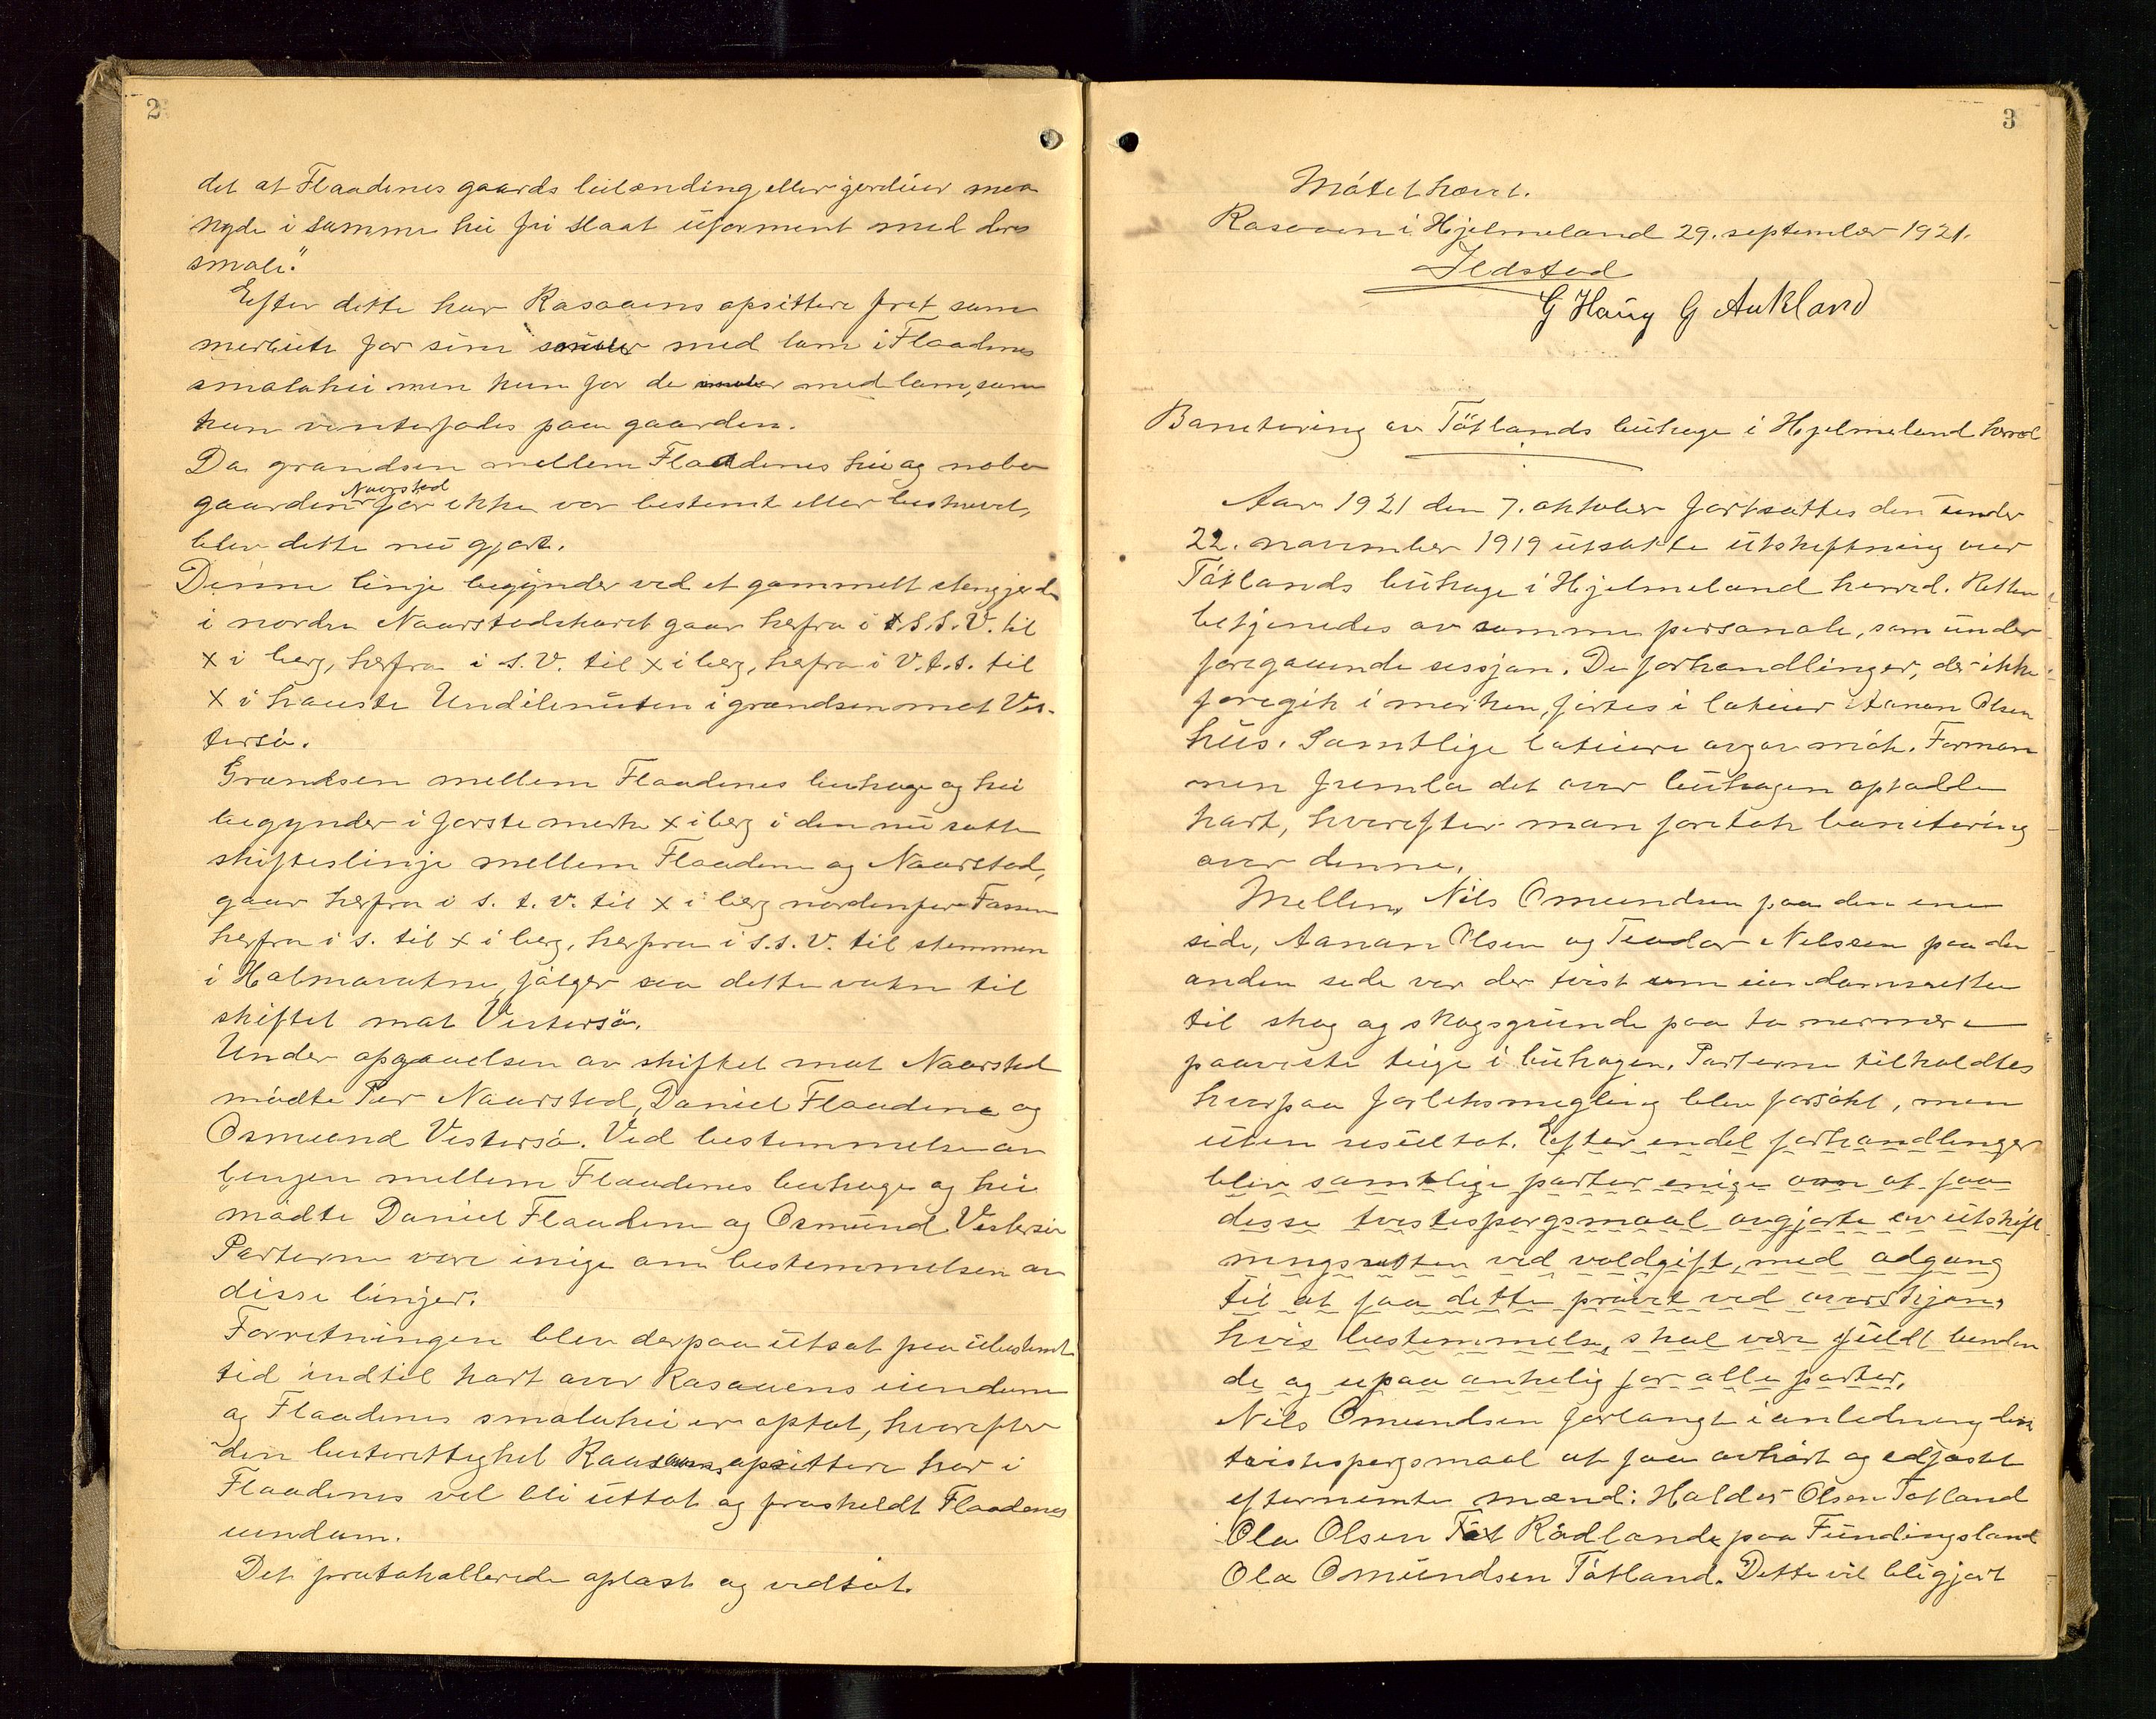 2
det at Flaadenes gaards leilænding eller jordeier maa
nyde i samme hei fri slaat uforment med deres
smale."
Efter dette har Rasaaens opsittere fret som
merbeite for sine smaler med lam i Flaadenes
smalahei men kun for de smaler med lam, som
kun vinterfødes paa gaarden.
Da grændsen mellem Flaadenes hei og nabo
gaarden Naarstad før ikke var bestemt eller beskrevet,
blev dette nu gjort.
Denne linje begynder ved et gammelt stengjerde
i nordre Naarstadskaret gaar herfra i S.S.V. til
x i berg, herfra i S.V. til x i berg, herfra i V.t.S. til
x i høieste Undilenuten i grændsen mot Ves-
tersø.
Grændsen mellem Flaadenes buhage og hei
begynder i første merke x i berg i den nu satte
skifteslinje mellem Flaadene og Naarstad,
gaar herfra i S.t.V. til x i berg nordenfor Fassen
herfra i S. til x i berg, herfra i S.S.V. til stemmen
i Holmavatne, følger saa dette vatn til
skiftet mot Vestersø.
Under opgaaelsen av skiftet mot Naarstad
mødte Per Naarstad, Daniel Flaadene og
Osmund Vestersø. Ved bestemmelse av
linjen mellem Flaadenes buhage og hei
mødte Daniel Flaadene og Osmund Vestersø
Parterne vare enige om bestemmelsen av
disse linjer.
Forretningen blev derpaa utsat paa ubestemt
tid indtil kart over Rasaaens eiendom
og Flaadenes smalahei er optat, hvorefter
den beiterettighet Rasaaens opsittere har i
Flaadenes vil bli uttat og fraskeldt Flaadenes
eiendom.
Det protokollerede oplæst og vedtat.
3
Møtet hævet.
Rasaaen i Hjelmeland 29. september 1921.
Ildstad
G Haug G Aukland
Bonitering av Tøtlands buhage i Hjelmeland herred
Aar 1921 den 7. oktober fortsattes den under
22. november 1919 utsatte utskiftning over
Tøtlands buhage i Hjelmeland herred. Retten
betjenedes av samme personale, som under
foregaaende sessjon. De forhandlinger, der ikke
foregik i marken, førtes i loteier Aanon Olsens
hus. Samtlige loteiere avgav møte. Forman
nen fremla det over buhagen optadde
kart, hvorefter man foretok bonitering
over denne.
Mellem Nils Omundsen paa den ene
side, Aanon Olsen og Teodor Nilssen paa den
anden side var der tvist om eiendomsretten
til skog og skogsgrunde paa to nærmere
paaviste teige i buhagen. Parterne tilholdtes
hvorpaa forliksmegling blev forsøkt, men
uten resultat. Efter endel forhandlinger
blev samtlige parter enige om at faa
disse tvistespørgsmaal avgjorte av utskift
ningsretten ved voldgift, med adgang
til at faa dette prøvet ved overskjøn,
hvis bestemmelse skal være fuldt binden
de og upaaankelig for alle parter.
Nils Omundsen forlangt i anledning disse
tvistespørgsmaal at faa avhørt og edfæstet
efternemte mænd: Haldor Olsen Tøtland
Ola Olsen Rødland paa Fundingsland
Ola Omundsen Tøtland. Dette vil bli gjort